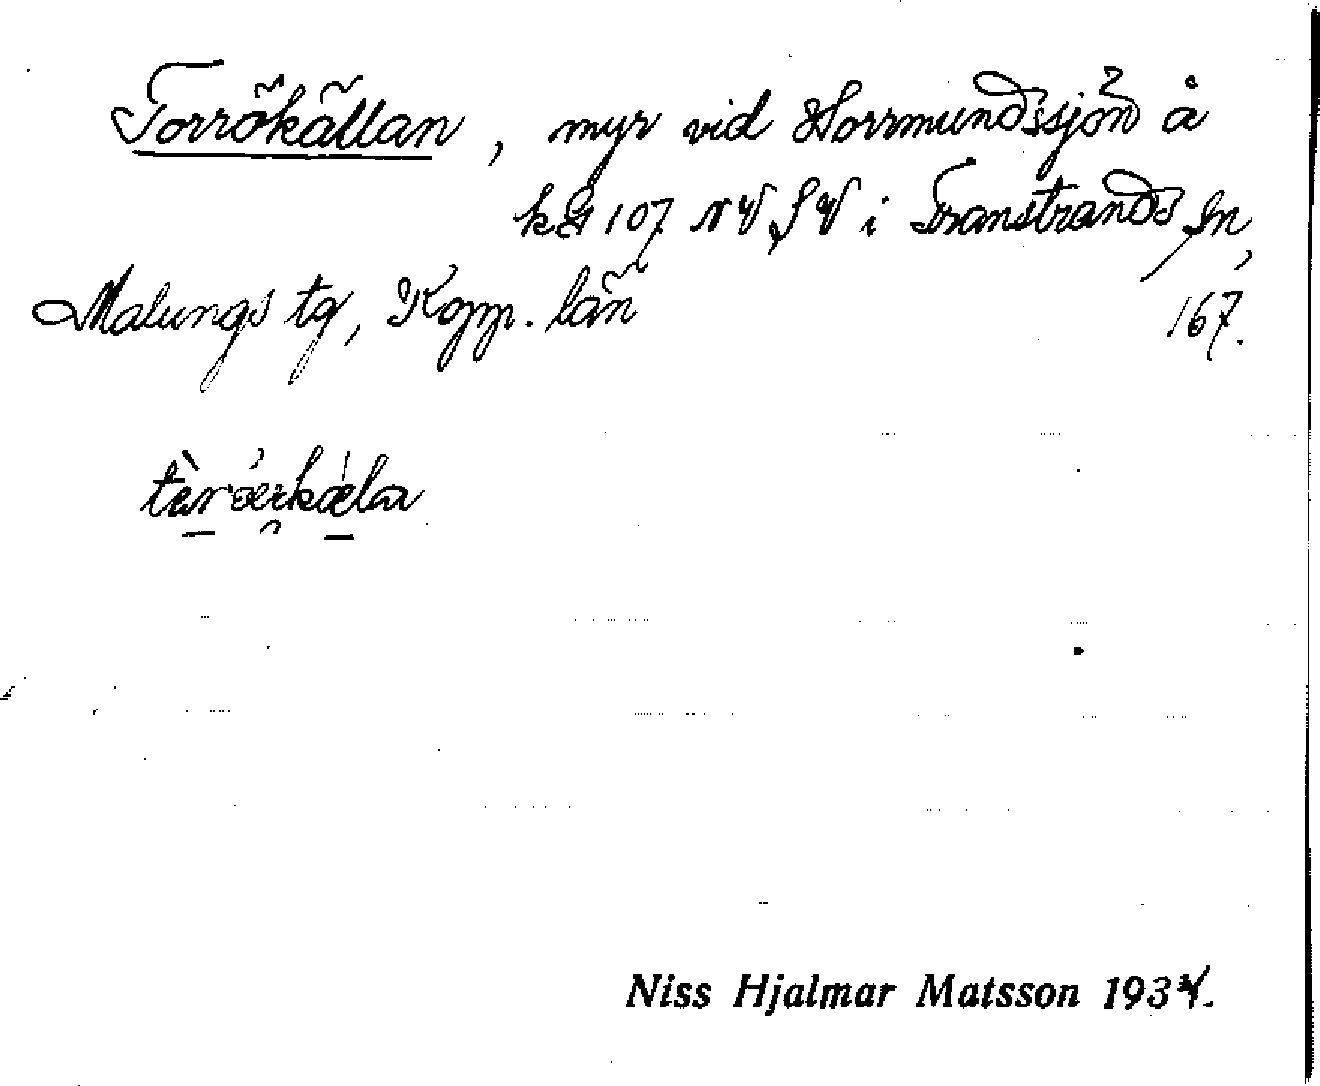 Torrökällan, myr vid Horrmundssjön å
kbl 107 NV, SV i Transtrands sn,
Malungs tg, Kopp. län 167.
Niss Hjalmar Matsson 1934.